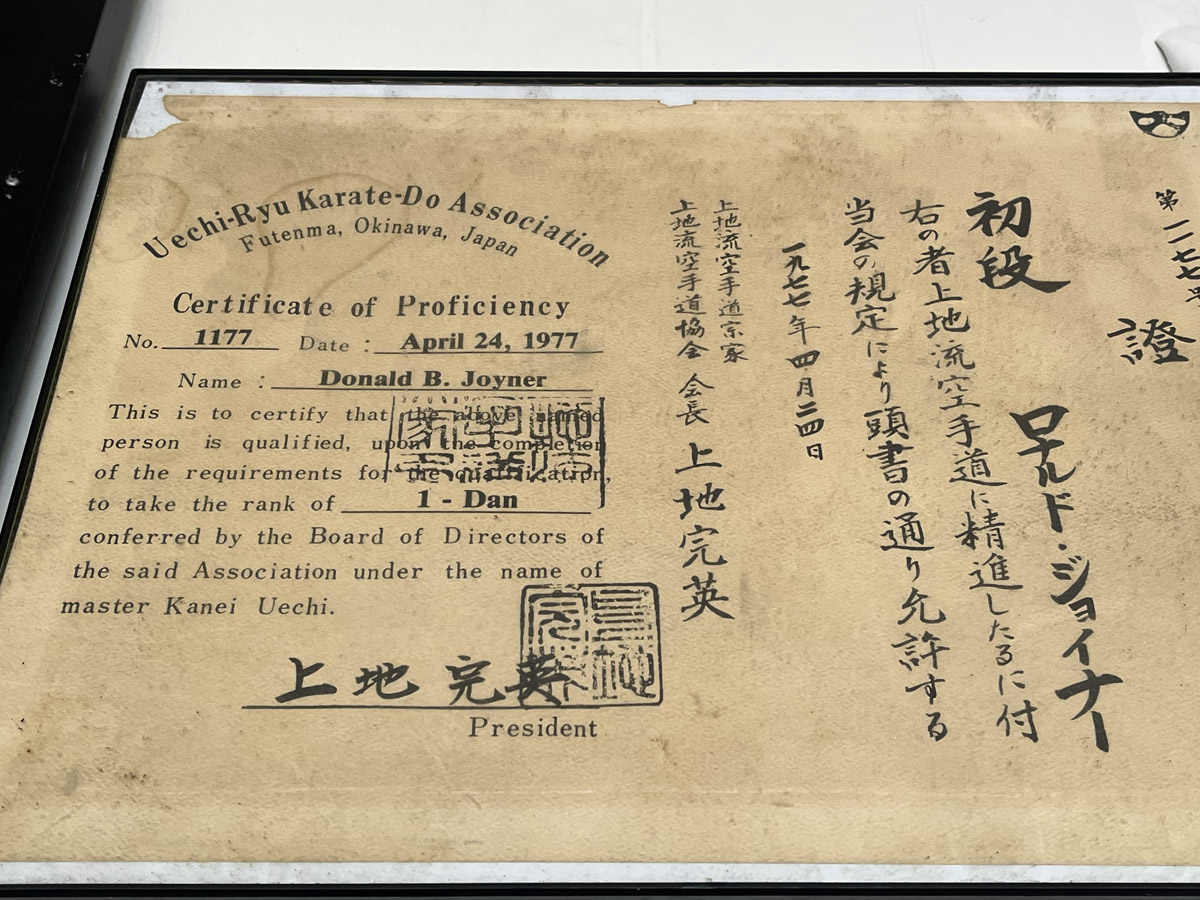 Uechi-Ryu Karate-Do Association
Futenma, Okinawa, Japan
Certificate of Proficiency
No. 1177 Date : April 24, 1977
Name : Donald B. Joyner
This is to certify that the above named
person is qualified, upon the completion
of the requirements for the qualification,
to take the rank of 1 - Dan
conferred by the Board of Directors of
the said Association under the name of
master Kanei Uechi.
上地 完英
President
第一一七七号
證
初段
ロナルド・ジョイナー
右の者上地流空手道に精進したるに付
当会の規定により頭書の通り允許する
一九七七年四月二四日
上地流空手道宗家
上地流空手道協会 会長 上地完英